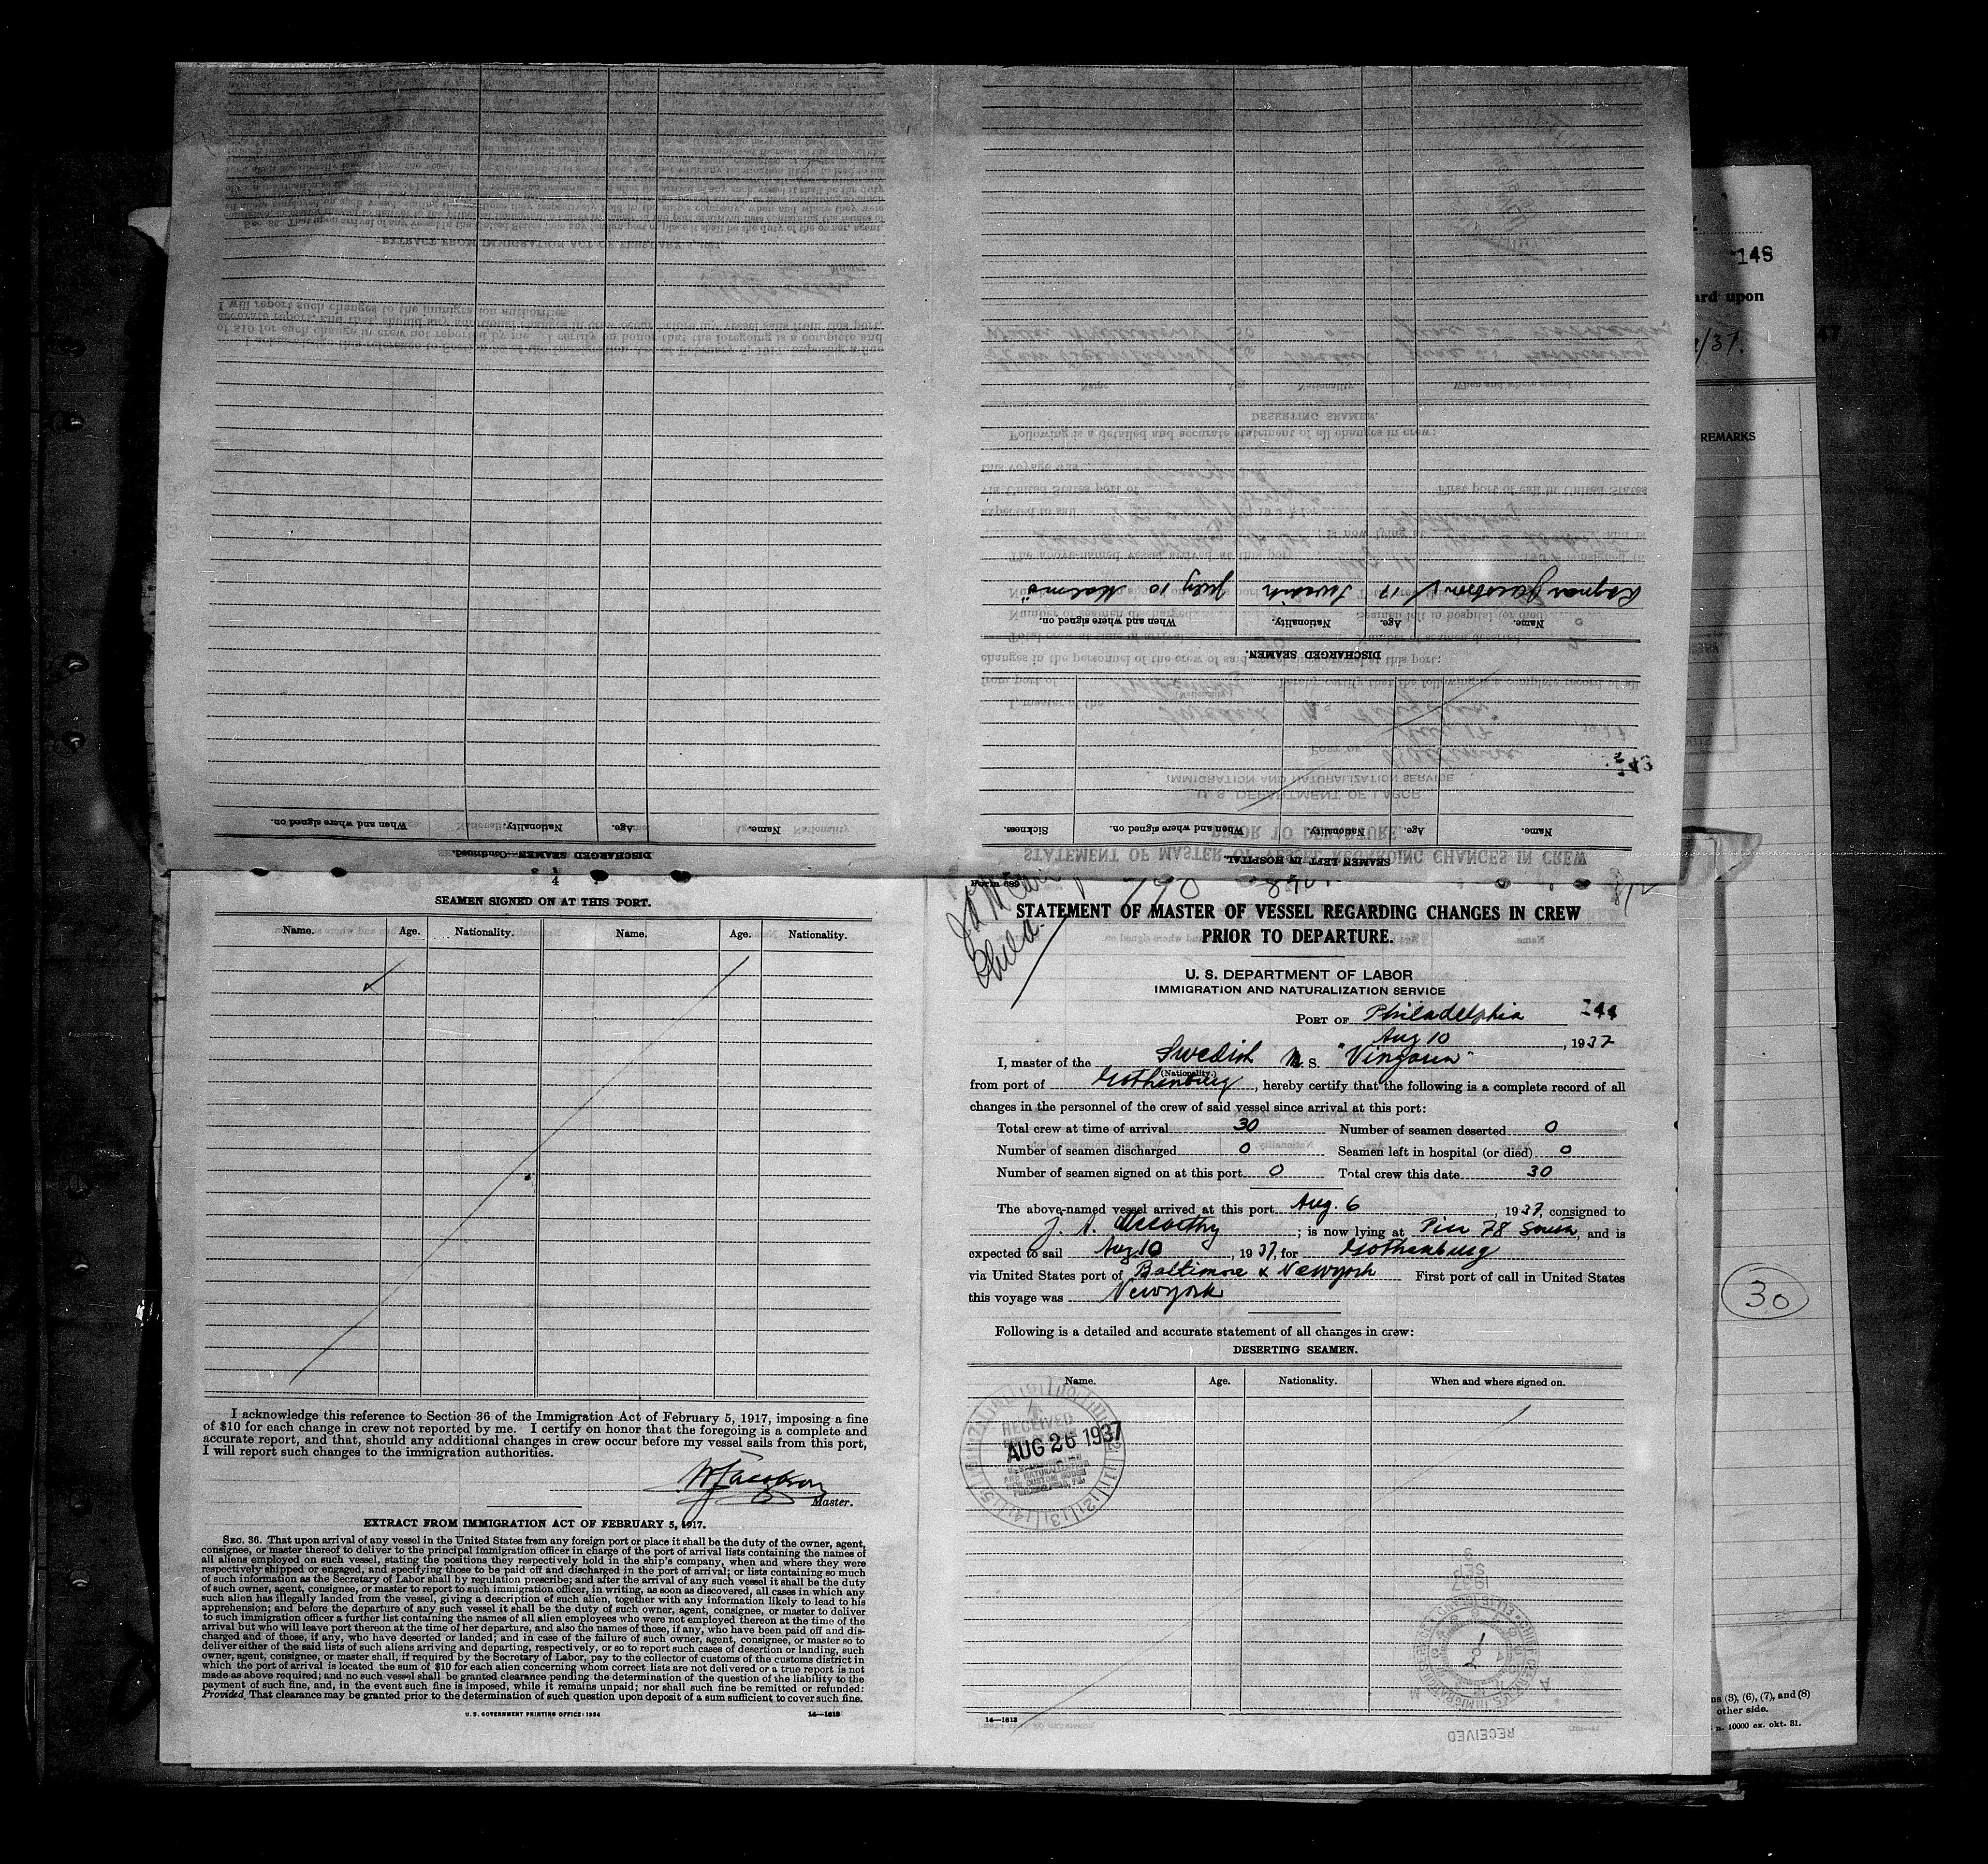 DISCHARGED SEAMEN—Continued.
Name. Age. Nationality. When and where signed on.
SEAMEN LEFT IN HOSPITAL.
Name. Age. Nationality. When and where signed on. Sickness.
143
DISCHARGED SEAMEN.
Name. Age. Nationality. When and where signed on.
Ragnar 17 Swedish July 10 Malmö
148
ard upon
/37.
47
REMARKS
30
ns (3), (6), (7), and (8)
other side.
n. 10000 ex. okt. 31.
SEAMEN SIGNED ON AT THIS PORT.
Name. Age. Nationality. Name. Age. Nationality.
I acknowledge this reference to Section 36 of the Immigration Act of February 5, 1917, imposing a fine
of $10 for each change in crew not reported by me. I certify on honor that the foregoing is a complete and
accurate report, and that, should any additional changes in crew occur before my vessel sails from this port,
I will report such changes to the immigration authorities.
Master.
EXTRACT FROM IMMIGRATION ACT OF FEBRUARY 5, 1917.
SEC. 36. That upon arrival of any vessel in the United States from any foreign port or place it shall be the duty of the owner, agent,
consignee, or master thereof to deliver to the principal immigration officer in charge of the port of arrival lists containing the names of
all aliens employed on such vessel, stating the positions they respectively hold in the ship's company, when and where they were
respectively shipped or engaged, and specifying those to be paid off and discharged in the port of arrival; or lists containing so much
of such information as the Secretary of Labor shall by regulation prescribe; and after the arrival of any such vessel it shall be the duty
of such owner, agent, consignee, or master to report to such immigration officer, in writing, as soon as discovered, all cases in which any
such alien has illegally landed from the vessel, giving a description of such alien, together with any information likely to lead to his
apprehension; and before the departure of any such vessel it shall be the duty of such owner, agent, consignee, or master to deliver
to such immigration officer a further list containing the names of all alien employees who were not employed thereon at the time of the
arrival but who will leave port thereon at the time of her departure, and also the names of those, if any, who have been paid off and dis-
charged and of those, if any, who have deserted or landed; and in case of the failure of such owner, agent, consignee, or master so to
deliver either of the said lists of such aliens arriving and departing, respectively, or so to report such cases of desertion or landing, such
owner, agent, consignee, or master shall, if required by the Secretary of Labor, pay to the collector of customs of the customs district in
which the port of arrival is located the sum of $10 for each alien concerning whom correct lists are not delivered or a true report is not
made as above required; and no such vessel shall be granted clearance pending the determination of the question of the liability to the
payment of such fine, and, in the event such fine is imposed, while it remains unpaid; nor shall such fine be remitted or refunded:
Provided, That clearance may be granted prior to the determination of such question upon deposit of a sum sufficient to cover such fine.
U. S. GOVERNMENT PRINTING OFFICE: 1934 14—1613
Form 689
Phila.
STATEMENT OF MASTER OF VESSEL REGARDING CHANGES IN CREW
PRIOR TO DEPARTURE.
U. S. DEPARTMENT OF LABOR
IMMIGRATION AND NATURALIZATION SERVICE
PORT OF Philadelphia 144
Aug 10, 1937
I, master of the Swedish M. S. "Vingaren"
(Nationality.)
from port of Gothenburg, hereby certify that the following is a complete record of all
changes in the personnel of the crew of said vessel since arrival at this port:
Total crew at time of arrival 30 Number of seamen deserted 0
Number of seamen discharged 0 Seamen left in hospital (or died) 0
Number of seamen signed on at this port 0 Total crew this date 30
The above-named vessel arrived at this port Aug. 6, 1937, consigned to
J. A. McCarthy; is now lying at Pier 78 South, and is
expected to sail Aug 10, 1937, for Gothenburg
via United States port of Baltimore & Newyork First port of call in United States
this voyage was Newyork
Following is a detailed and accurate statement of all changes in crew:
DESERTING SEAMEN.
Name. Age. Nationality. When and where signed on.
RECEIVED
AUG 26 1937
14—1613
RECEIVED
1937
SEP